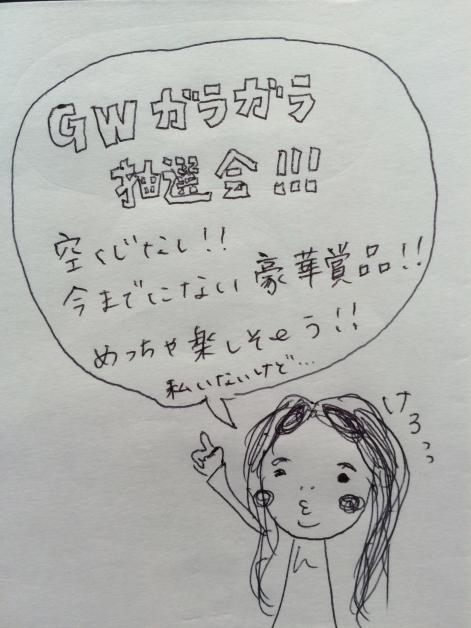 GWガラガラ
抽選会!!!
空くじなし!!
今までにない豪華賞品!!
めっちゃ楽しそう!!
私いないけど…
けろっっ